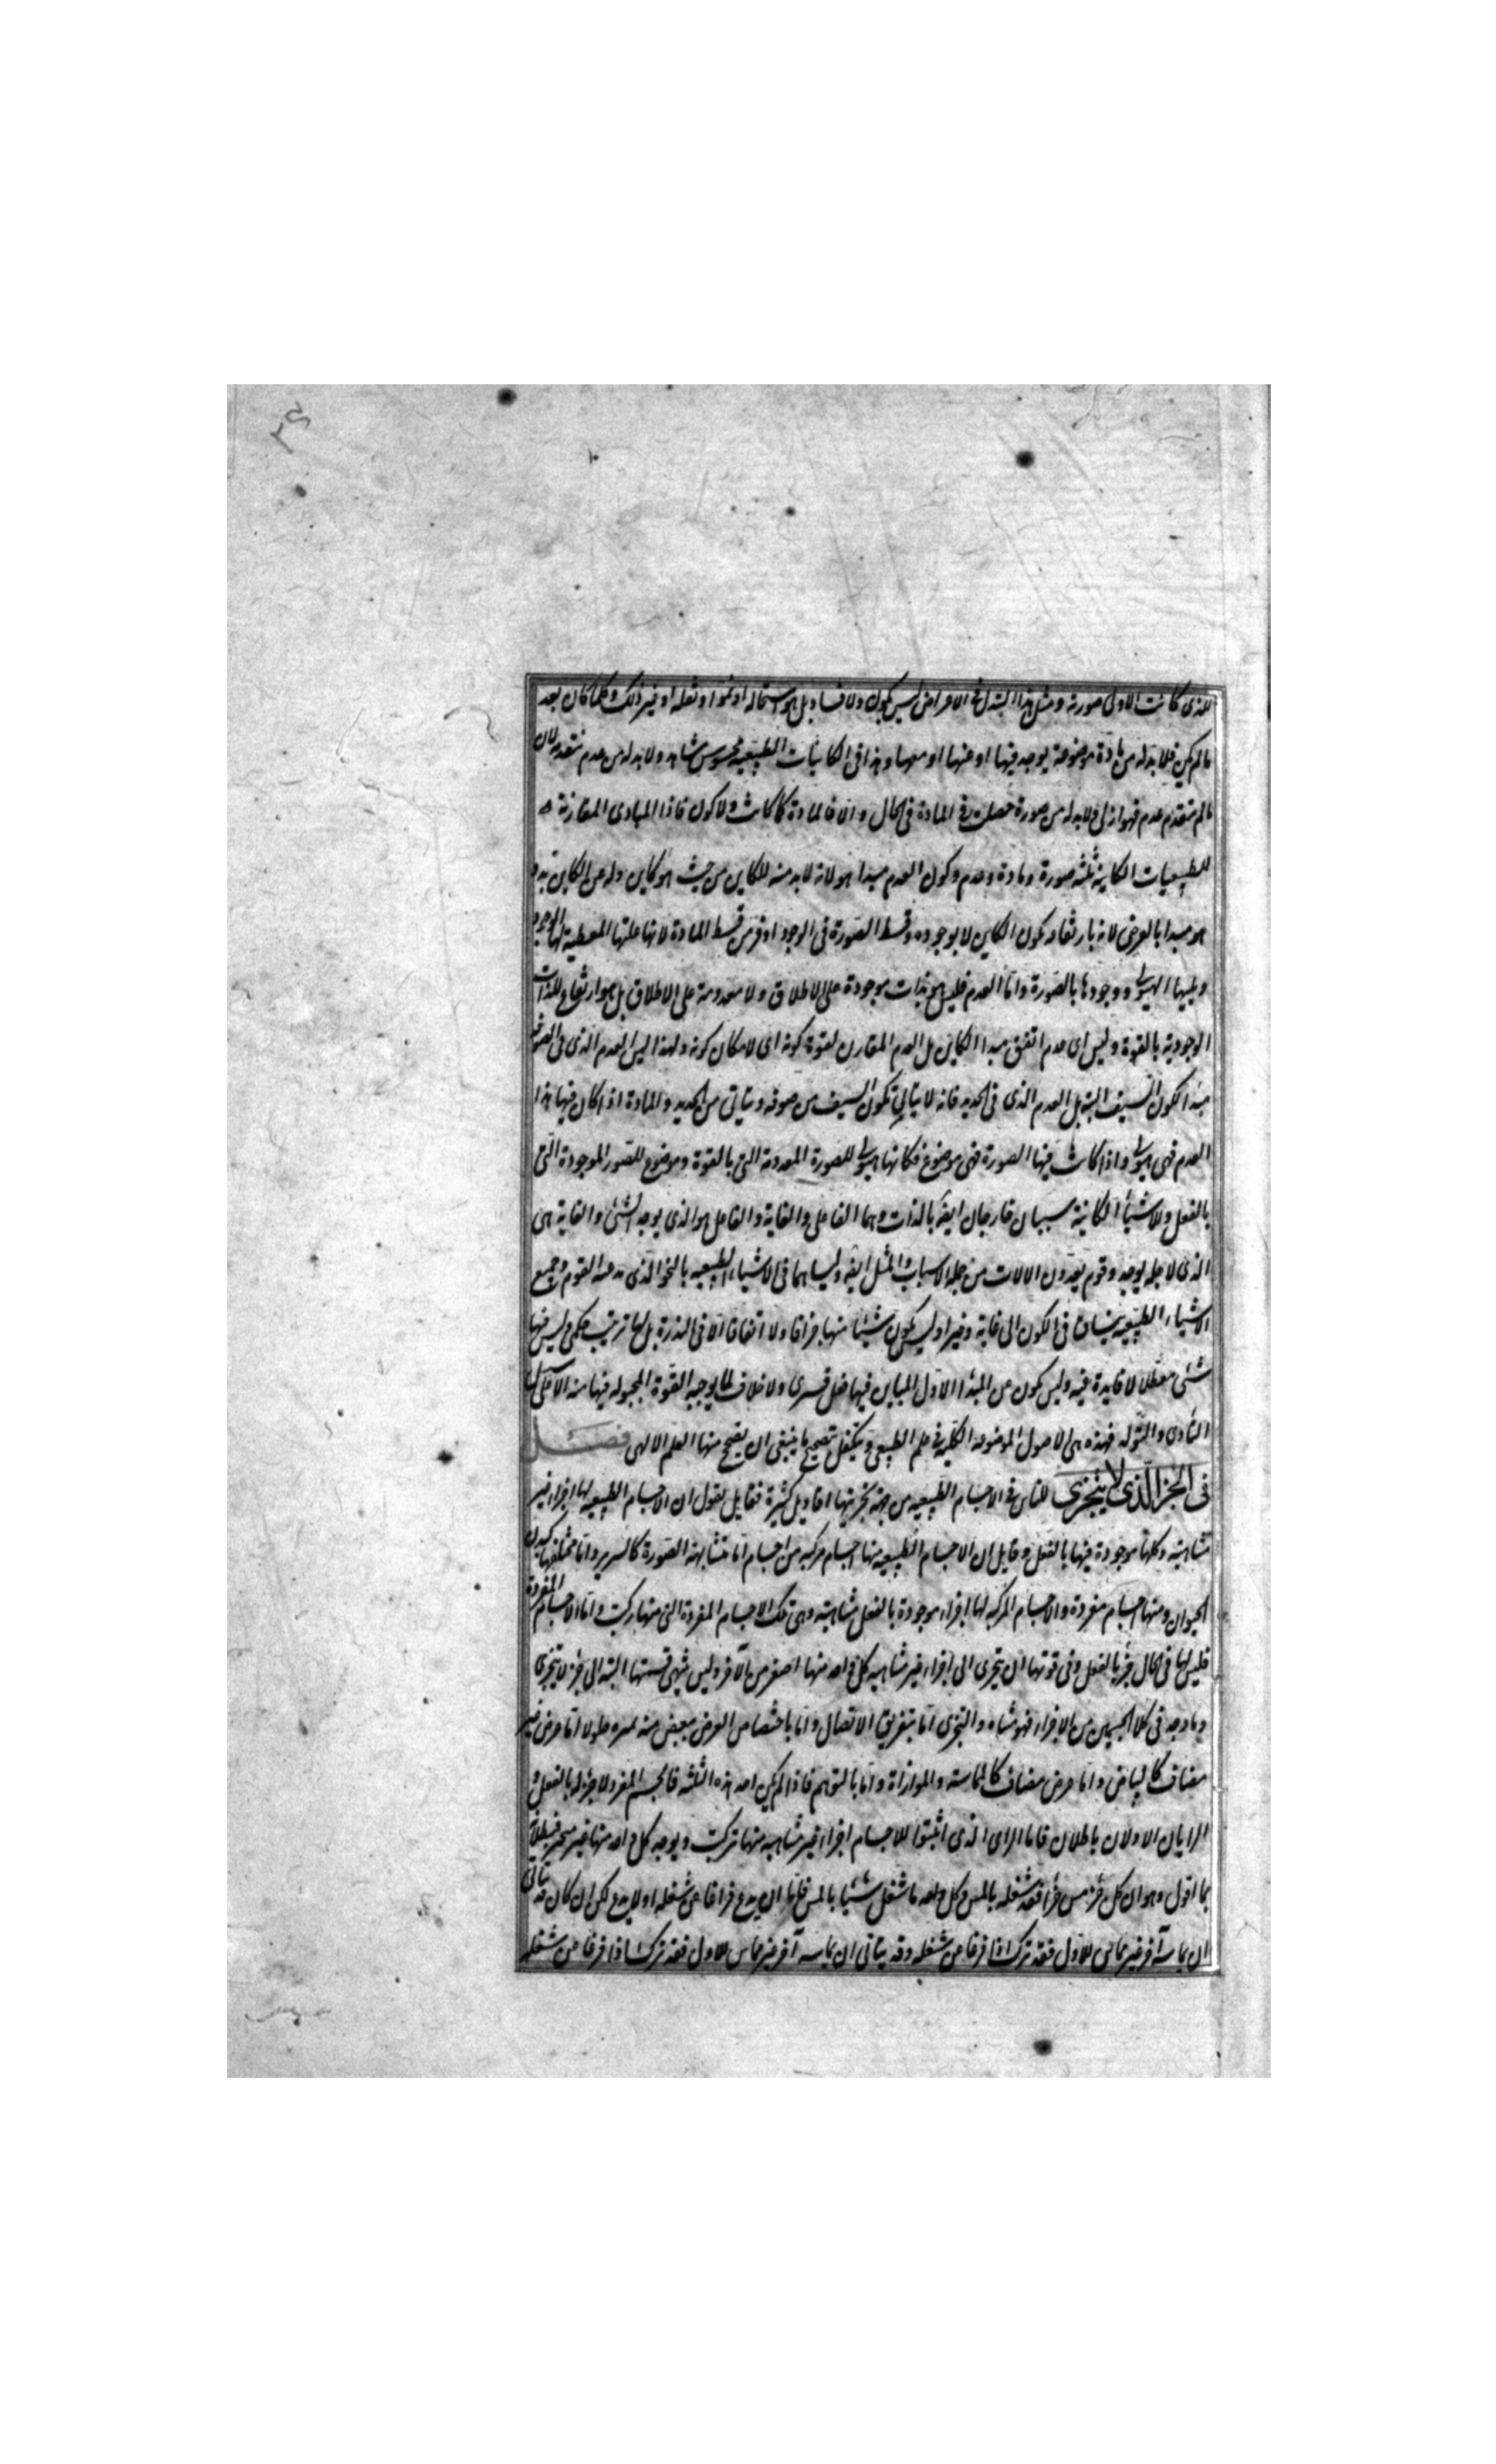 للذى كانت الاولى صورته ومثل هذا التبدل فى الاعراض ليس بكون ولا فساد بل هو استحالة او نموا او نقله او غير ذلك وكلما كان بعد
ما لم يكن فلا بد له من مادة موضوعة يوجد فيها او عنها او معها وهذا فى الكاينات الطبيعيه محسوس شاهد ولا بد له من عدم يتقدمه لان
ما لم يتقدم عدم فهو ازلى ولا بد له من صورة حصلت فى المادة فى الحال والا فالمادة كما كانت ولا كون فاذا المبادى المقارنة
للطبيعيات الكاينة ثلثه صورة ومادة وعدم وكون العدم مبدا هو لانه لا بد منه للكاين من حيث هو كاين وله عن الكاين بد و
هو مبدا بالعرض لانه بارتفاعه يكون الكاين لا بوجوده وقسط الصورة فى الوجود اوفر من قسط المادة لانها علتها المعطية لها الوجود
ويليها الهيولى ووجودها بالصورة واما العدم فليس هو بذات موجودة على الاطلاق ولا معدومة على الاطلاق بل هو ارتفاع للذات
الوجودية بالقوة وليس اى عدم اتفق مبدا الكاين بل العدم المقارن لقوة كونه اى لامكان كونه ولهذا ليس العدم الذى فى الصوفة
مبدا لكون السيف البته بل العدم الذى فى الحديد فانه لا يتاتى تكون السيف من صوفه ويتاتى من الحديد والمادة اذا كان فيها هذا
العدم فهى هيولى واذا كانت فيها الصورة فهى موضوع فكانها هيولى للصورة المعدومة التى بالقوة وموضوع للصور الموجودة التى
بالفعل وللاشياء الكاينة سببان خارجان ايضا بالذات وهما الفاعل والغاية والفاعل هو الذى يوجد الشئ والغاية هى
الذى لاجله يوجد وقوم يعدون الالات من جملة الاسباب والمثل ايضا وليسا هما فى الاشياء الطبيعيه بالنحو الذى عند القوم وجميع
الاشياء الطبيعيه ينساق فى الكون الى غاية وخير وليس يكون شيئا منها جزافا ولا اتفاقا الا فى الندرة بل لها ترتيب حكمى وليس فيها
شئ معطلا لا فايدة فيه وليس يكون عن المبدأ الاول المباين فيها فعل قسرى ولا خلاف لما يوجبه القوة المجبوله فيها منه الا على
التادى والتولد فهذه هى الاصول الموضوعه الكلية فى علم الطبيعى ويتكفل بتصحيح ما ينبغى ان يصحح منها العلم الالهى فصل
فى الجزء الذى لا يتجزى للناس فى الاجسام الطبيعيه من جهة تجزيها اقاويل كثيرة فقايل يقول ان الاجسام الطبيعيه لها اجزاء غير
متناهية وكلها موجودة فيها بالفعل وقايل ان الاجسام الطبيعيه منها اجسام مركبه من اجسام اما متشابهة الصورة كالسرير واما مختلفها كبدن
الحيوان ومنها اجسام مفردة والاجسام المركبه لها اجزاء موجودة بالفعل متناهية وهى تلك الاجسام المفردة التى منها تركبت واما الاجسام المفردة
فليس لها فى الحال جزء بالفعل وفى قوتها ان يتجزى الى اجزاء غير متناهيه كل واحد منها اصغر من الاخر وليس ينتهى قسمتها البته الى جزء لا يتجزى
وما وجد فى كلا الجسمين من الاجزاء فهو متناه والتجزى اما بتفريق الاتصال واما باختصاص العرض ببعض منه يميزه حلولا اما عرض غير
مضاف كالبياض واما عرض مضاف كالمماسة والموازاة واما بالتوهم فاذا لم يكن احد هذه الثلثه فالجسم المفرد لا جزء له بالفعل و
الرايان الاولان باطلان فاما الراى الذى اثبتوا للاجسام اجزاء غير متناهيه منها تركبت ويوجد كل واحد منها غير متجز فبطلانه
بما اقول وهو ان كل جزء مس جزءا فقد شغله بالمس وكل واحد ما شغل شيئا بالمس فاما ان يدع فراغا عن شغله او لا يدع لكن ان كان قد يتاتى
ان يماسه آخر غير مماس للاول فقد ترك اذا فراغا عن شغله وقد يتاتى ان يماسه آخر غير مماس للاول فقد ترك اذا فراغا عن شغله